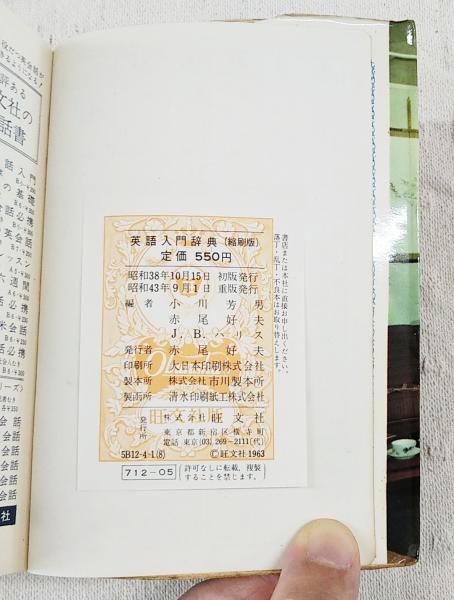 役だつ英会話が
きるようになる♪
評ある
文社の
話書
話入門
B6·¥250
の基礎
話必携
英会話
レッスン
六週間
会話
必携
米会話
話必携
リーズ〉
会話
会話
会話
会話
会話
社
英語入門辞典〔縮刷版〕
定価 550円
昭和38年10月15日 初版発行
昭和43年9月1日 重版発行
編者 小川芳男
赤尾好夫
J.B.ハリス
発行者 赤尾好夫
印刷所 大日本印刷株式会社
製本所 株式会社市川製本所
製函所 清水印刷紙工株式会社
発行所 株式会社 旺文社
東京都新宿区横寺町
電話 東京(03)269-2111(代)
5B12-4-1(8) ©旺文社1963
712-05
許可なしに転載，複製
することを禁じます。
書店または本社に直接お申し出ください。
落丁・乱丁・不良本はお取り替えします。